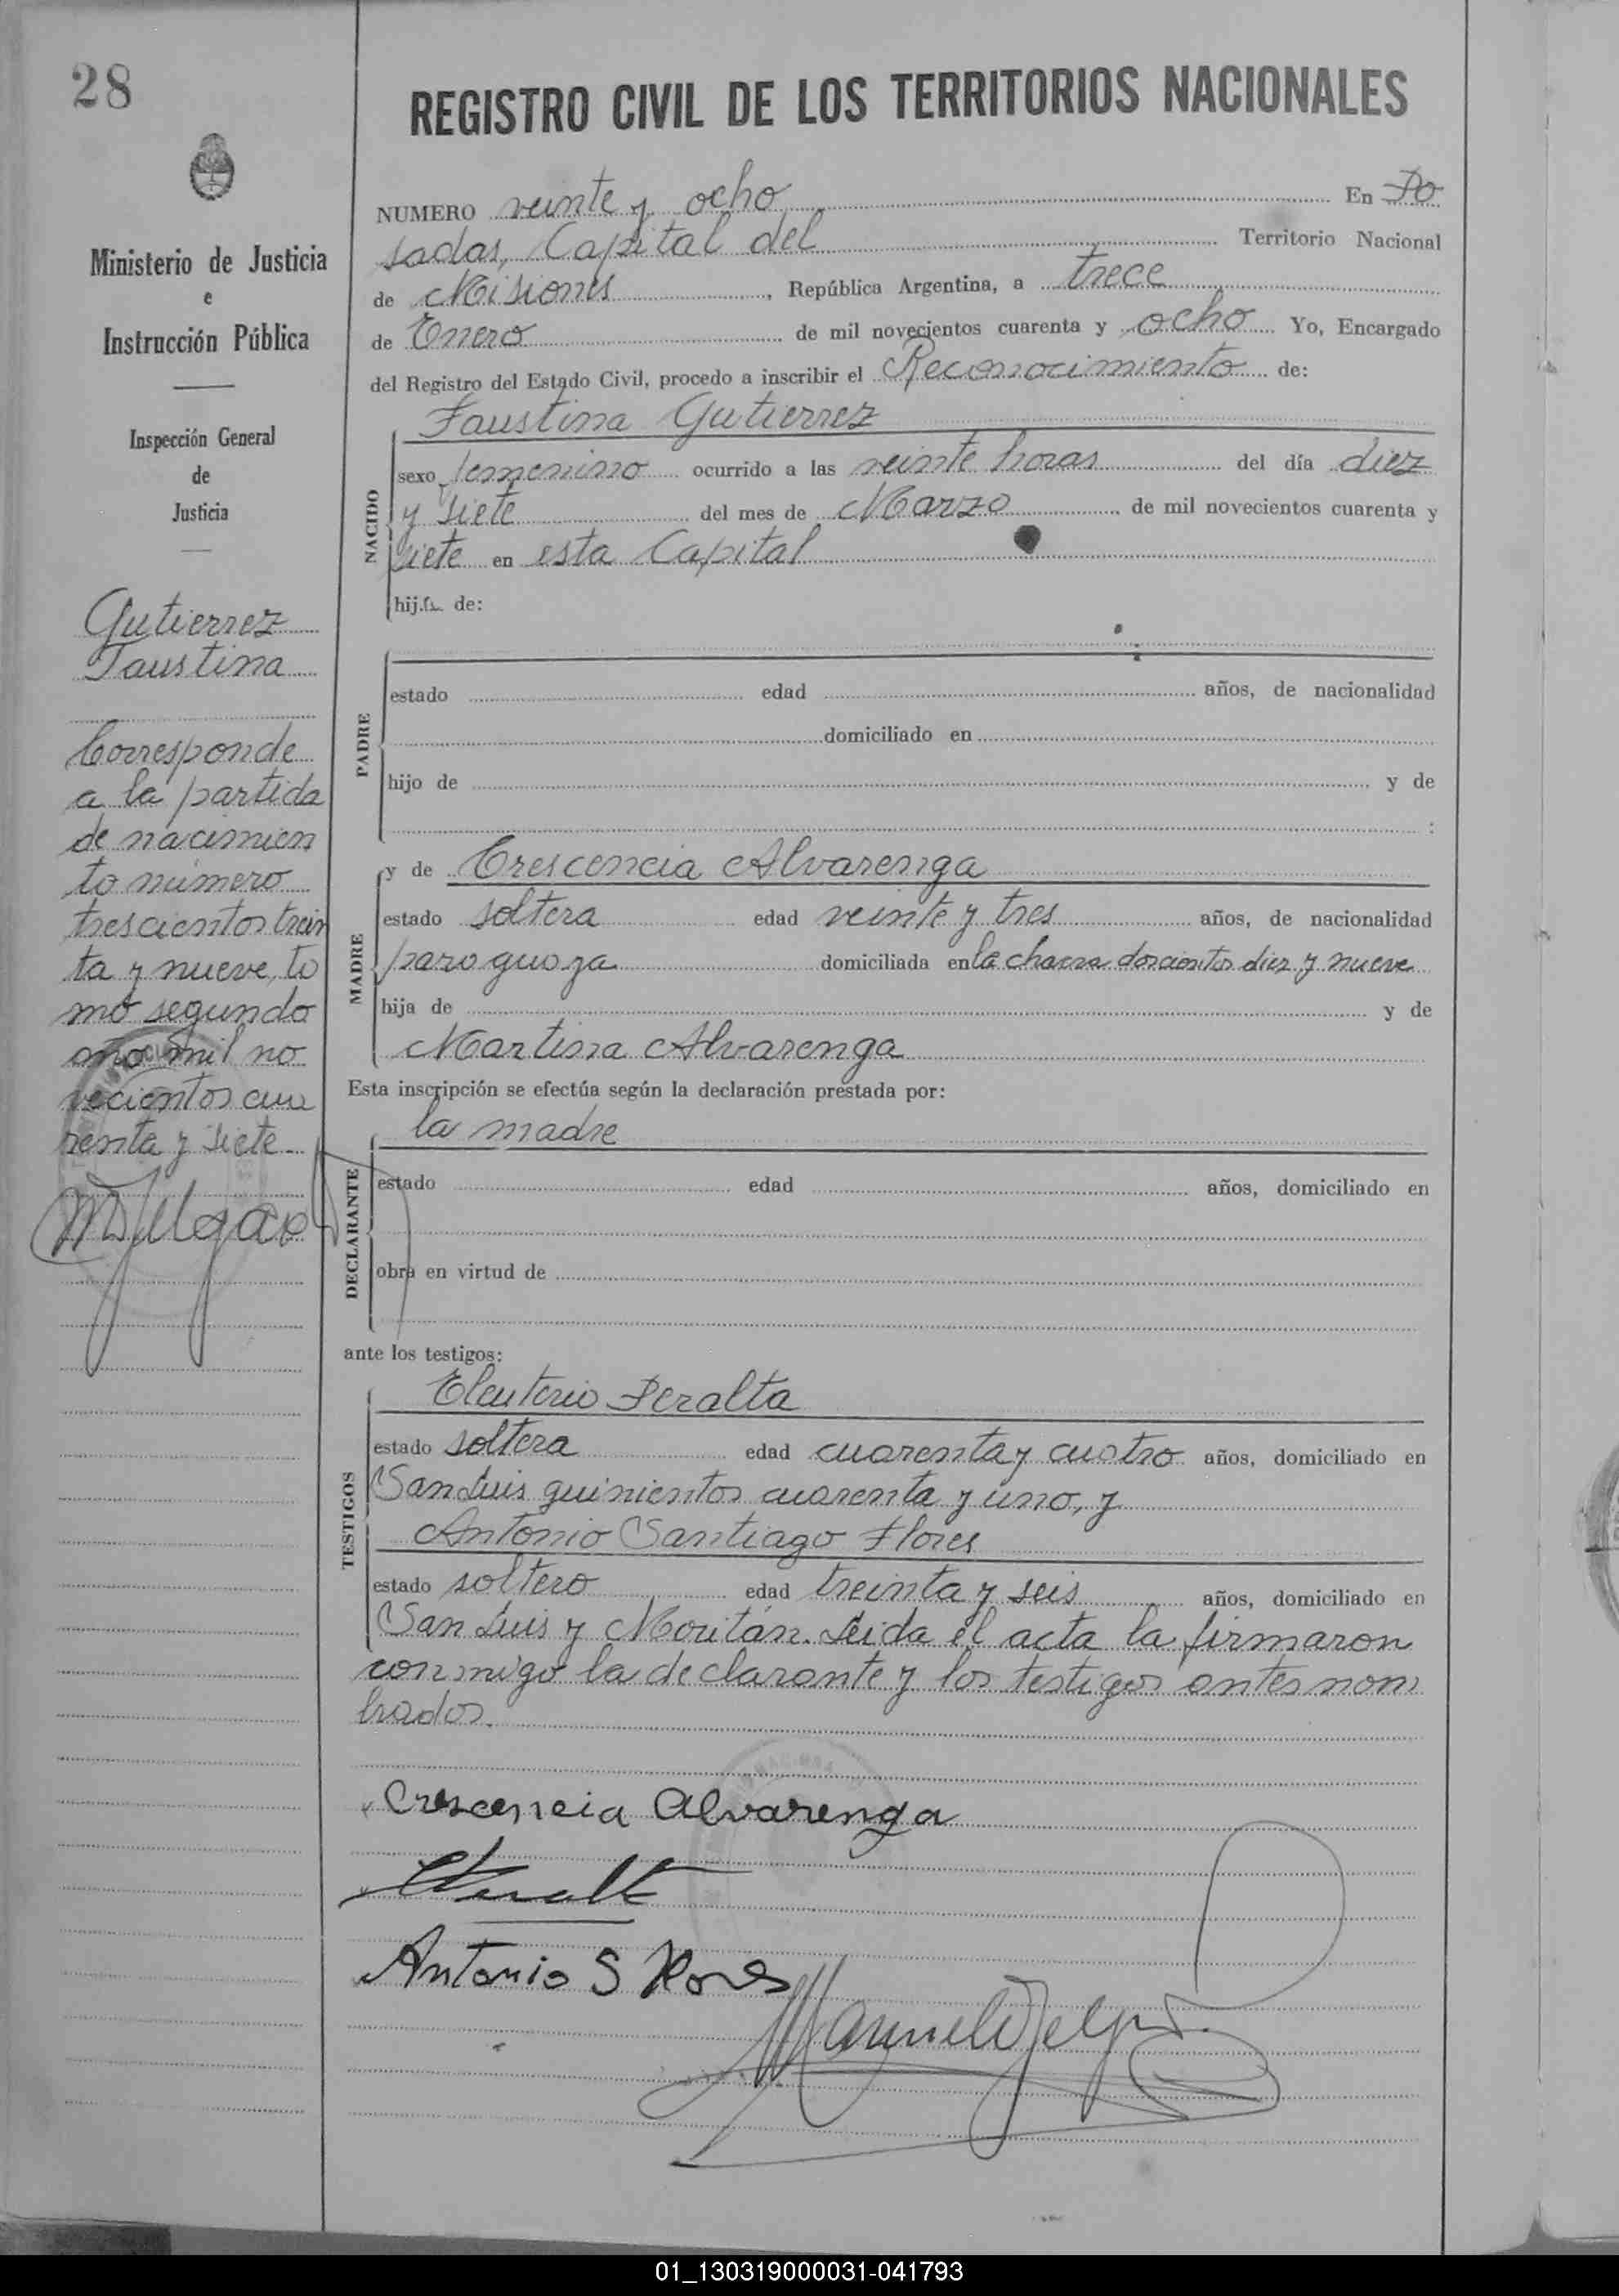 28
REGISTRO CIVIL DE LOS TERRITORIOS NACIONALES
Ministerio de Justicia
e
Instrucción Pública
Inspección General
de
Justicia
Gutierrez
Faustina
Corresponde
a la partida
de nacimien
to número
trescientos trein
ta y nueve, to
mo segundo
año mil no
vecientos cua
renta y siete
NUMERO veinte y ocho En Po
sadas, Capital del Territorio Nacional
de Misiones, República Argentina, a trece
de Enero de mil novecientos cuarenta y ocho Yo, Encargado
del Registro del Estado Civil, procedo a inscribir el Reconocimiento de:
Faustina Gutierrez
NACIDO
sexo femenino ocurrido a las veinte horas del día diez
y siete del mes de Marzo de mil novecientos cuarenta y
siete en esta Capital
hij.a de:
PADRE
estado edad años, de nacionalidad
domiciliado en
hijo de y de
:
MADRE
y de Crescencia Alvarenga
estado soltera edad veinte y tres años, de nacionalidad
paraguaya domiciliada en la chacra doscientos diez y nueve
hija de y de
Martina Alvarenga
Esta inscripción se efectúa según la declaración prestada por:
la madre
DECLARANTE
estado edad años, domiciliado en
obra en virtud de
ante los testigos:
TESTIGOS
Eleuterio Peralta
estado soltera edad cuarenta y cuatro años, domiciliado en
San Luis quinientos cuarenta y uno, y
Antonio Santiago Flores
estado soltero edad treinta y seis años, domiciliado en
San Luis y Moritán. Leida el acta la firmaron
conmigo la declarante y los testigos antes nom
brados.
Crescencia Alvarenga
Antonio S Flores
01_130319000031-041793